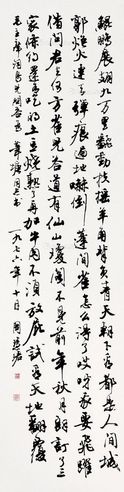 鲲鹏展翅九万里翻动扶摇羊角背负青天朝下看都是人间城
郭炮火连天弹痕遍地吓倒蓬间雀怎么得了哎呀我要飞跃
借问君去何方雀儿答道有仙山琼阁不见前年秋月朗订了三
家条约还有吃的土豆烧熟了再加牛肉不须放屁试看天地翻覆
毛主席词鸟儿问答 一九七六年十月 周慧珺